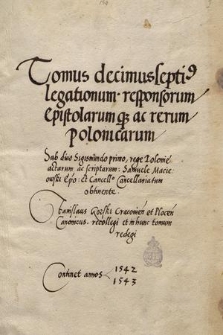 Tomus decimus septi9
legationum responsorum
Epistolarum q3 ac rerum
polonicarum
Sub divo Sigismundo primo, rege Polonie
actarum ac scriptarum: Samuele Macie
Epo: et Cancellariatum
obtinente.
Stanislaus Gorski Cracovien et Plocen
Canonicus. recollegi et in hunc tomum
redegi
Continet annos 1542
1543